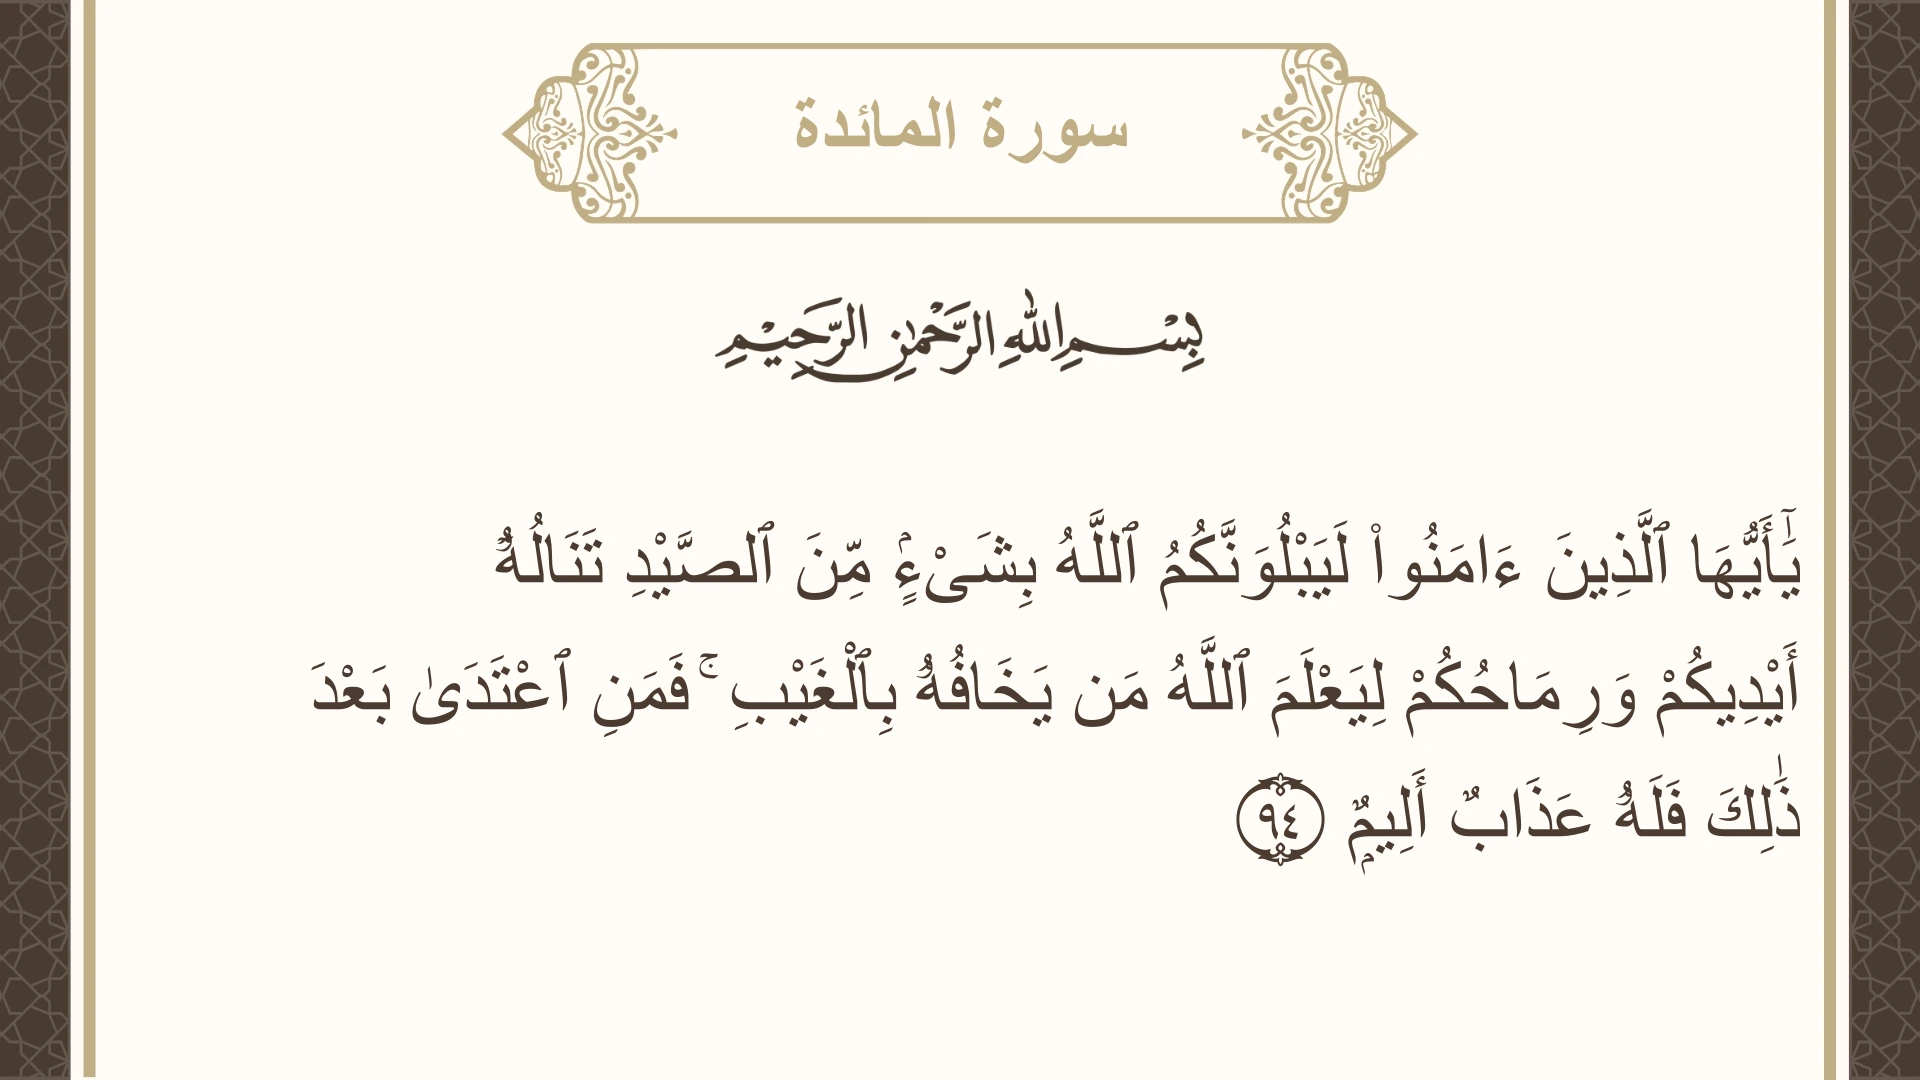 سورة المائدة
بِسْمِ اللهِ الرَّحْمٰنِ الرَّحِيْمِ
يَٰٓأَيُّهَا ٱلَّذِينَ ءَامَنُوا۟ لَيَبْلُوَنَّكُمُ ٱللَّهُ بِشَىْءٍۢ مِّنَ ٱلصَّيْدِ تَنَالُهُۥٓ
أَيْدِيكُمْ وَرِمَاحُكُمْ لِيَعْلَمَ ٱللَّهُ مَن يَخَافُهُۥ بِٱلْغَيْبِ ۚ فَمَنِ ٱعْتَدَىٰ بَعْدَ
ذَٰلِكَ فَلَهُۥ عَذَابٌ أَلِيمٌۭ ٩٤